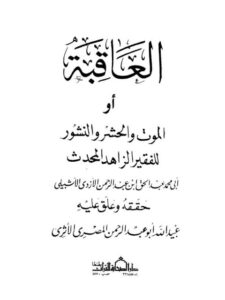 العاقبة
أو
الموت والحشر والنشور
للفقير الزاهد المحدث
أبي محمد عبد الحق ابن عبد الرحمن الأزدي الأشبيلي
حققه وعلق عليه
عبيد الله أبو عبد الرحمن المصري الأثري